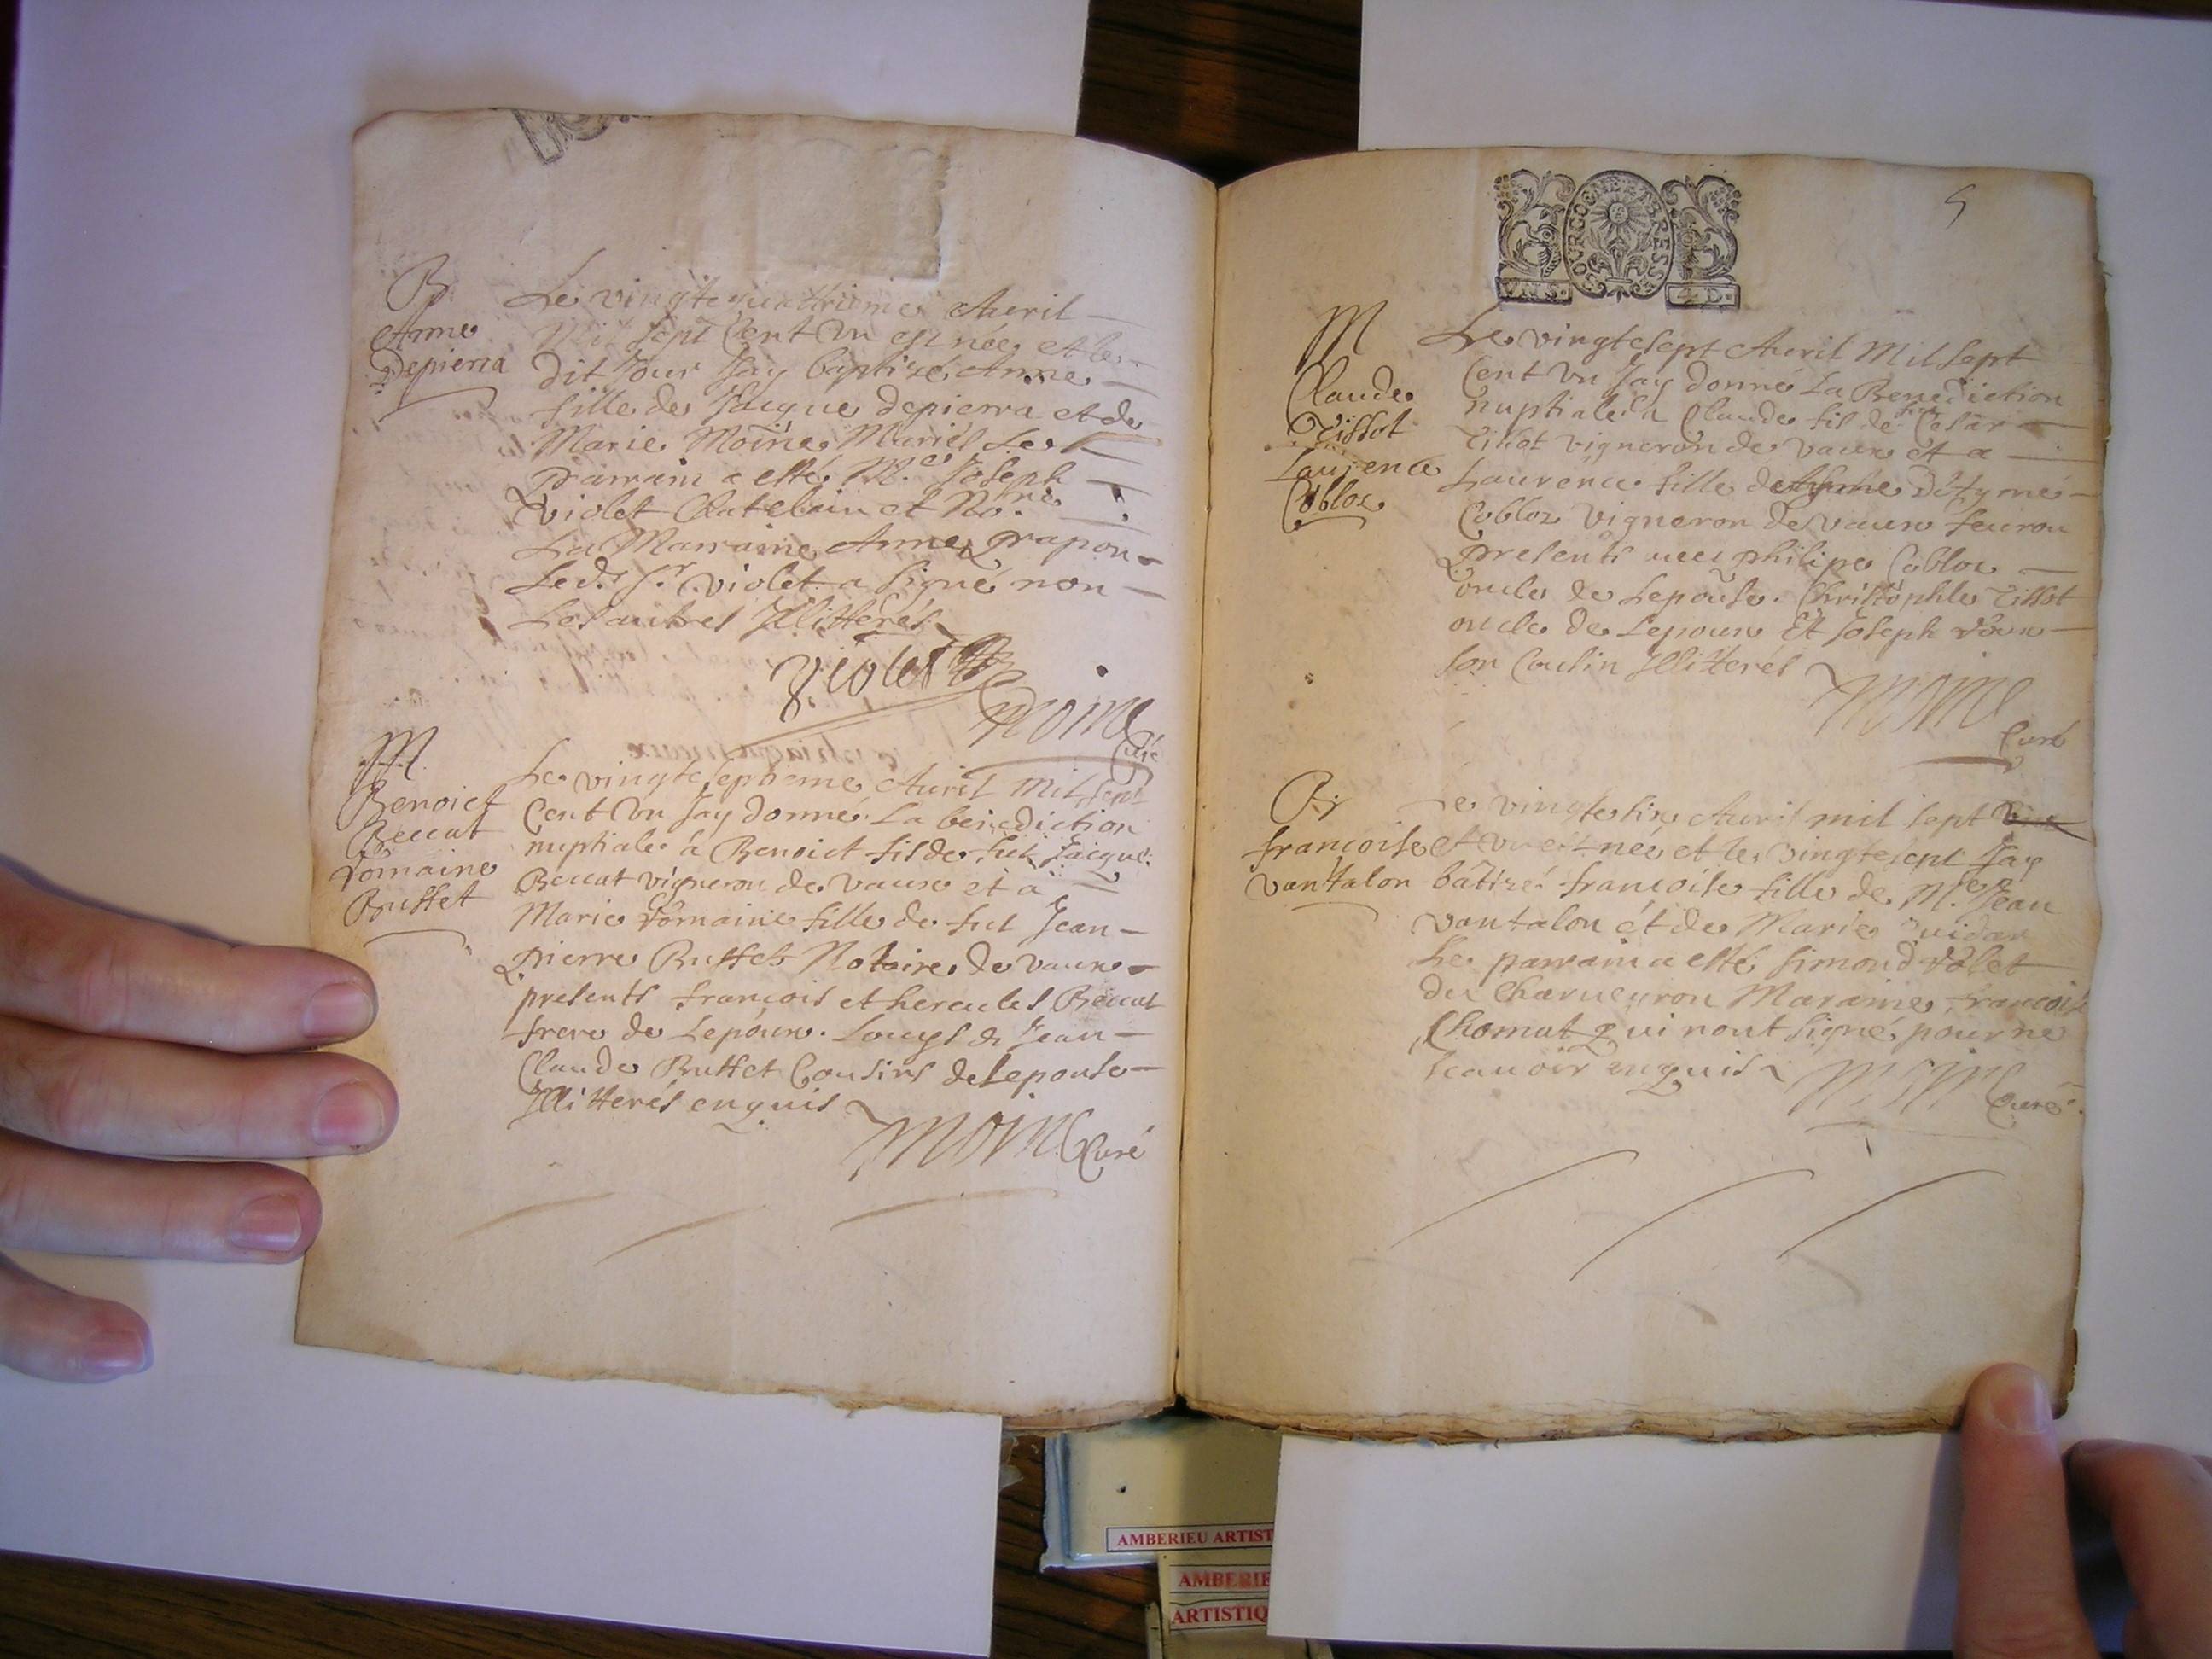 B
Anne
Depierra
Le vingtequatrieme Avril
Mil sept Cent Vn est née et le
dit Jour Jay baptizé Anne
fille de Jacque Depierra et de
Marie Moine Mariés Le
parrain a esté Me Joseph
Violet Chatelain et No.re
La Marraine Anne Grapon
Led. Sr. Violet a signé non
Les autres Illitterés
Violet
Moine
Curé
M
Benoict
Beccat
Romaine
Buffet
Le vingtesepteme Avril Mil sept
Cent Vn Jay donné La benediction
nuptiale à Benoict fils de fut Jacque
Beccat vigneron de Vaux et à
Marie Romaine fille de fut Jean
pierre Buffet Notaire de Vaux
presents françois et hercules Beccat
frere de Lepoux. Louys & Jean
Claude Buffet Cousins de Lepouse
Illitterés enquis
Moine Curé
5
BOURGOGNE ET BRESSE
4. D.
M
Claude
Tissot
Laurence
Cobloz
Le vingtesept Avril Mil sept
Cent Vn Jay donné La Benediction
nuptiale a Claude fils de fut Cesar
Tissot vigneron de Vaux et a
Laurence fille de Aymé
Cobloz vigneron de Vaux feuron
presents philipe Cobloz
oncle de Lepouse. Christophle Tissot
oncle de Lepoux Et Joseph
son Cousin Illitterés
Moine
Curé
B
francoise
Vantalon
Le vingtesix Avril mil sept
et vn est née et le vingtesept Jay
bâtizé francoise fille de Me Jean
Vantalon et de Marie
Le parrain a esté Simond
du Charveyron Maraine francoise
Chomat qui nont signé pour ne
scauoir enquis
Moine
Curé
AMBERIEU ARTIST
AMBERIE
ARTISTIQ